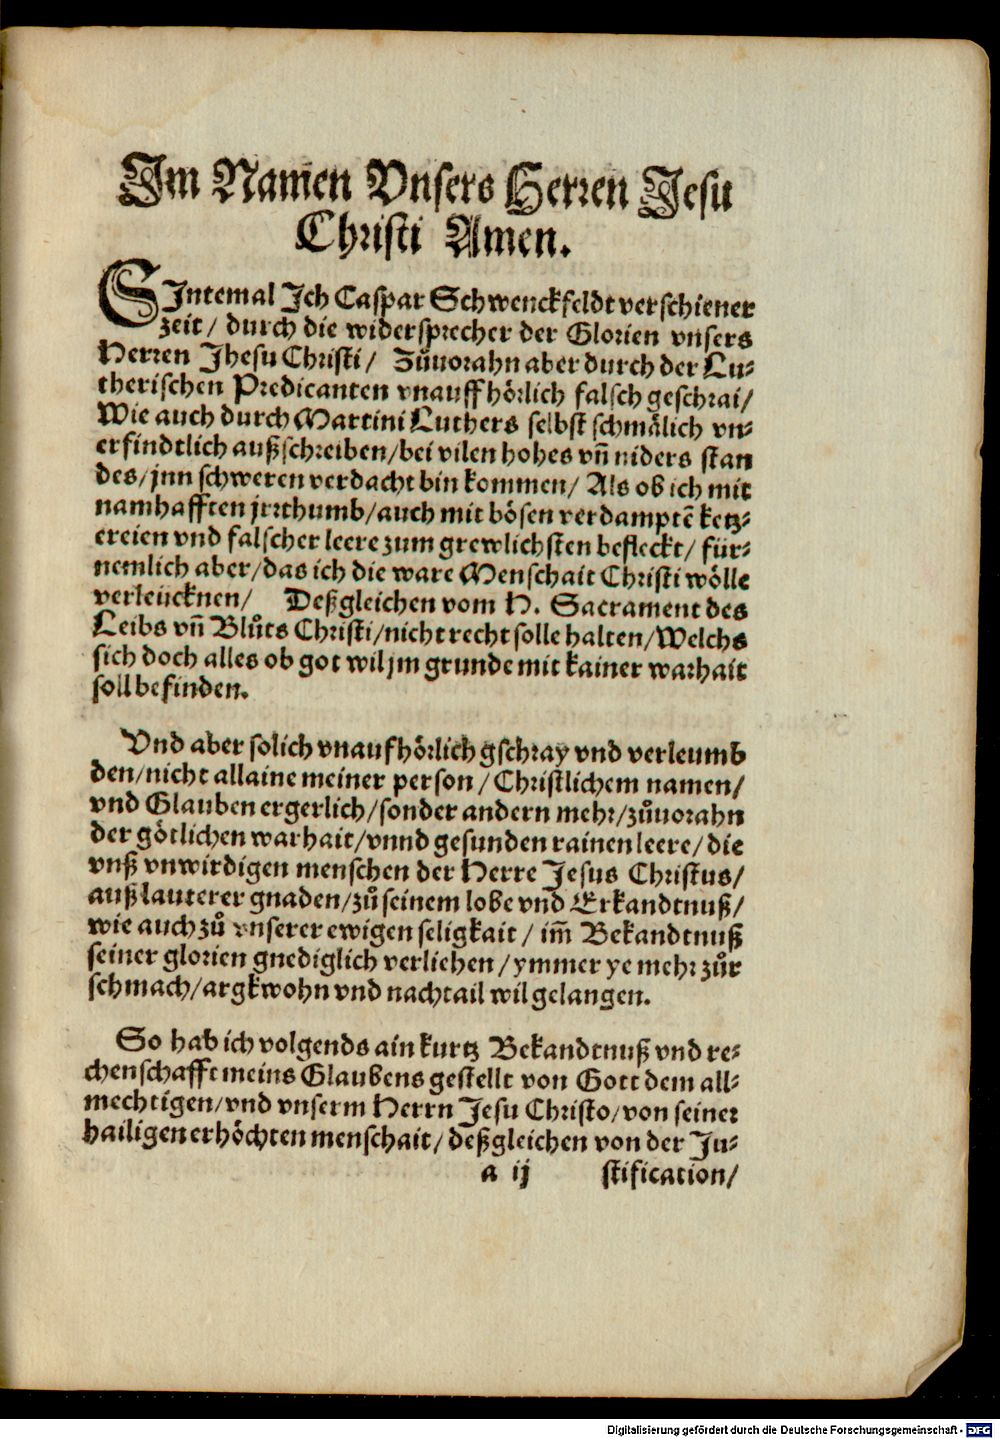 Im Namen Vnsers Herren Jesu
Christi Amen.
SIntemal Ich Caspar Schwenckfeldt verschiener
zeit/ durch die widersprecher der Glorien vnsers
Herren Jhesu Christi/ Zůuorahn aber durch der Lu-
therischen Predicanten vnauffhörlich falsch geschrai/
Wie auch durch Martini Luthers selbst schmälich vn-
erfindtlich außschreiben/bei vilen hohes vñ niders stan
des/jnn schweren verdacht bin kommen/ Als ob ich mit
namhafften jrrthumb/auch mit bösen verdamptē ketz-
ereien vnd falscher leere zum grewlichsten befleckt/ für-
nemlich aber/das ich die ware Menschait Christi wölle
verleücknen/ Deßgleichen vom H. Sacrament des
Leibs vñ Blůts Christi/nicht recht solle halten/Welchs
sich doch alles ob got wil jm grunde mit kainer warhait
soll befinden.
Vnd aber solich vnaufhörlich gschray vnd verleumb
den/nicht allaine meiner person/Christlichem namen/
vnd Glauben ergerlich/sonder andern mehr/zůuorahn
der götlichen warhait/vnnd gesunden rainen leere/die
vnß vnwirdigen menschen der Herre Jesus Christus/
auß lauterer gnaden/zů seinem lobe vnd Erkandtnuß/
wie auch zů vnserer ewigen seligkait/ im̃ Bekandtnuß
seiner glorien gnediglich verliehen/ymmer ye mehr zůr
schmach/argkwohn vnd nachtail wil gelangen.
So hab ich volgends ain kurtz Bekandtnuß vnd re-
chenschafft meins Glaubens gestellt von Gott dem all-
mechtigen/vnd vnserm Herrn Jesu Christo/von seiner
hailigen erhöchten menschait/deßgleichen von der Ju-
a ij stification/
Digitalisierung gefördert durch die Deutsche Forschungsgemeinschaft - DFG